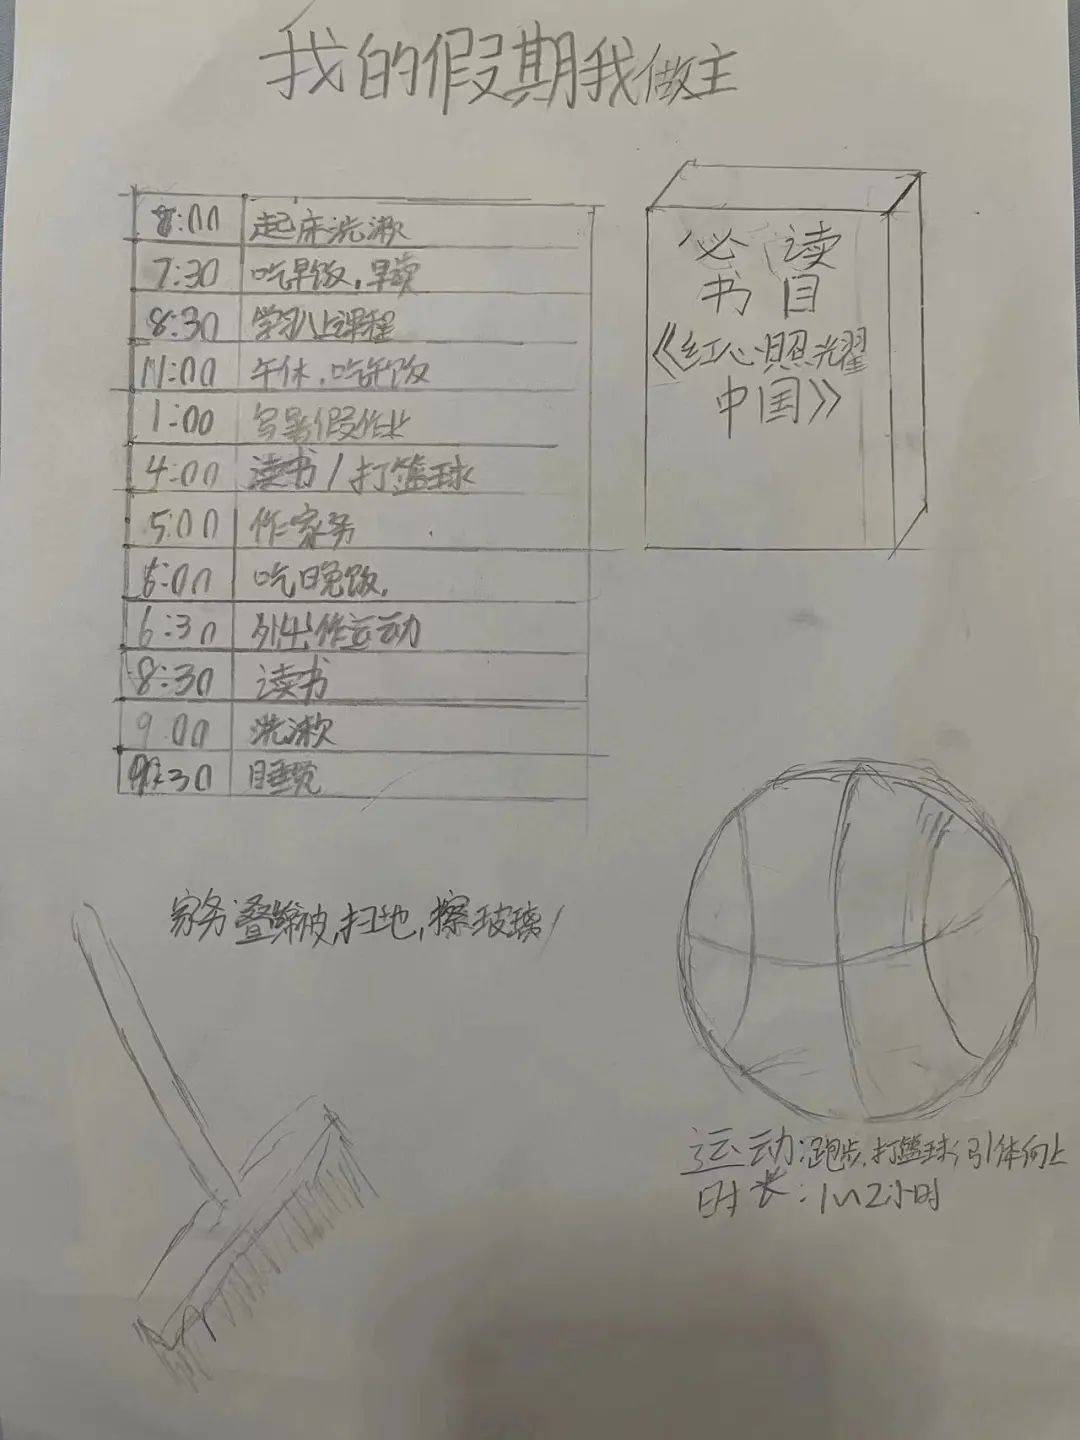 我的假期我做主
8:00 起床洗漱
7:30 吃早饭,早读
8:30 学习网上课程
11:00 午休,吃午饭
1:00 写暑假作业
4:00 读书/打篮球
5:00 作家务
6:00 吃晚饭,
6:30 外出作运动
8:30 读书
9:00 洗漱
:30 睡觉
必读
书目
《红心照耀
中国》
家务:叠棉被,扫地,擦玻璃
运动:跑步,打篮球,引体向上
时长:1~2小时